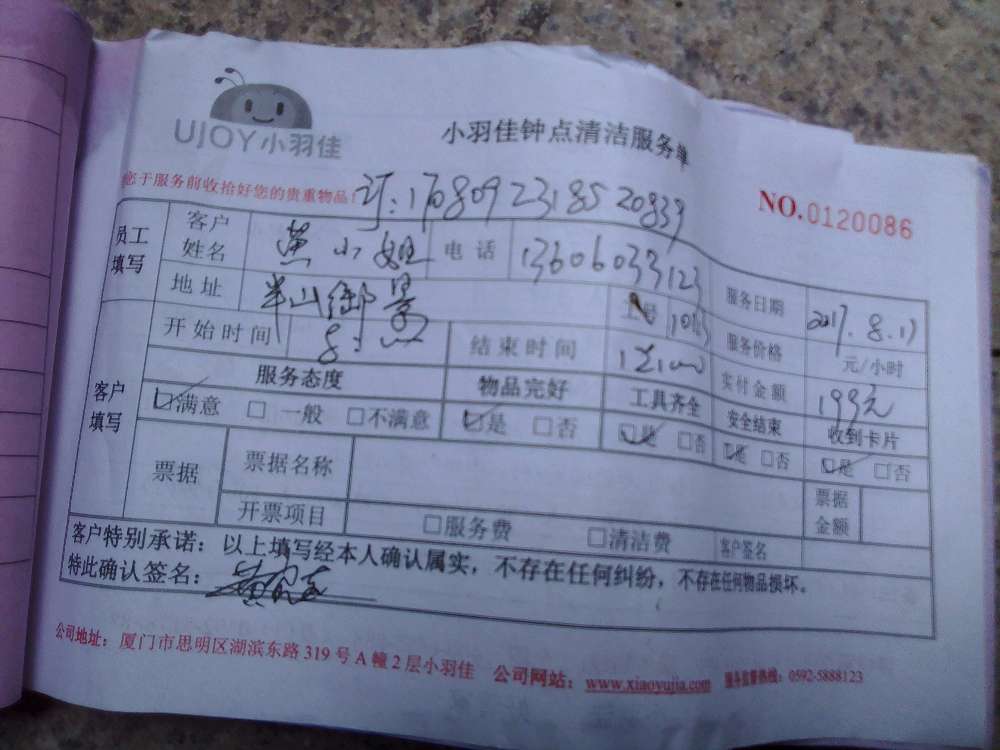 UJOY小羽佳
小羽佳钟点清洁服务单
您于服务前收拾好您的贵重物品！ 订:17080923185520839
NO.0120086
员工填写 客户姓名 黄小姐 电话 13606033123 服务日期 2017.8.17
地址 半山御景 工号 服务价格 元/小时
客户填写 开始时间 结束时间 实付金额 199元
服务态度 物品完好 工具齐全 安全结束 收到卡片
满意 一般 不满意 是 否 是 否 是 否 是 否
票据 票据名称 票据金额
开票项目 服务费 清洁费 客户签名
客户特别承诺：以上填写经本人确认属实，不存在任何纠纷，不存在任何物品损坏。
特此确认签名：
公司地址：厦门市思明区湖滨东路319号A幢2层小羽佳 公司网站：www.xiaoyujia.com 服务监督热线：0592-5888123